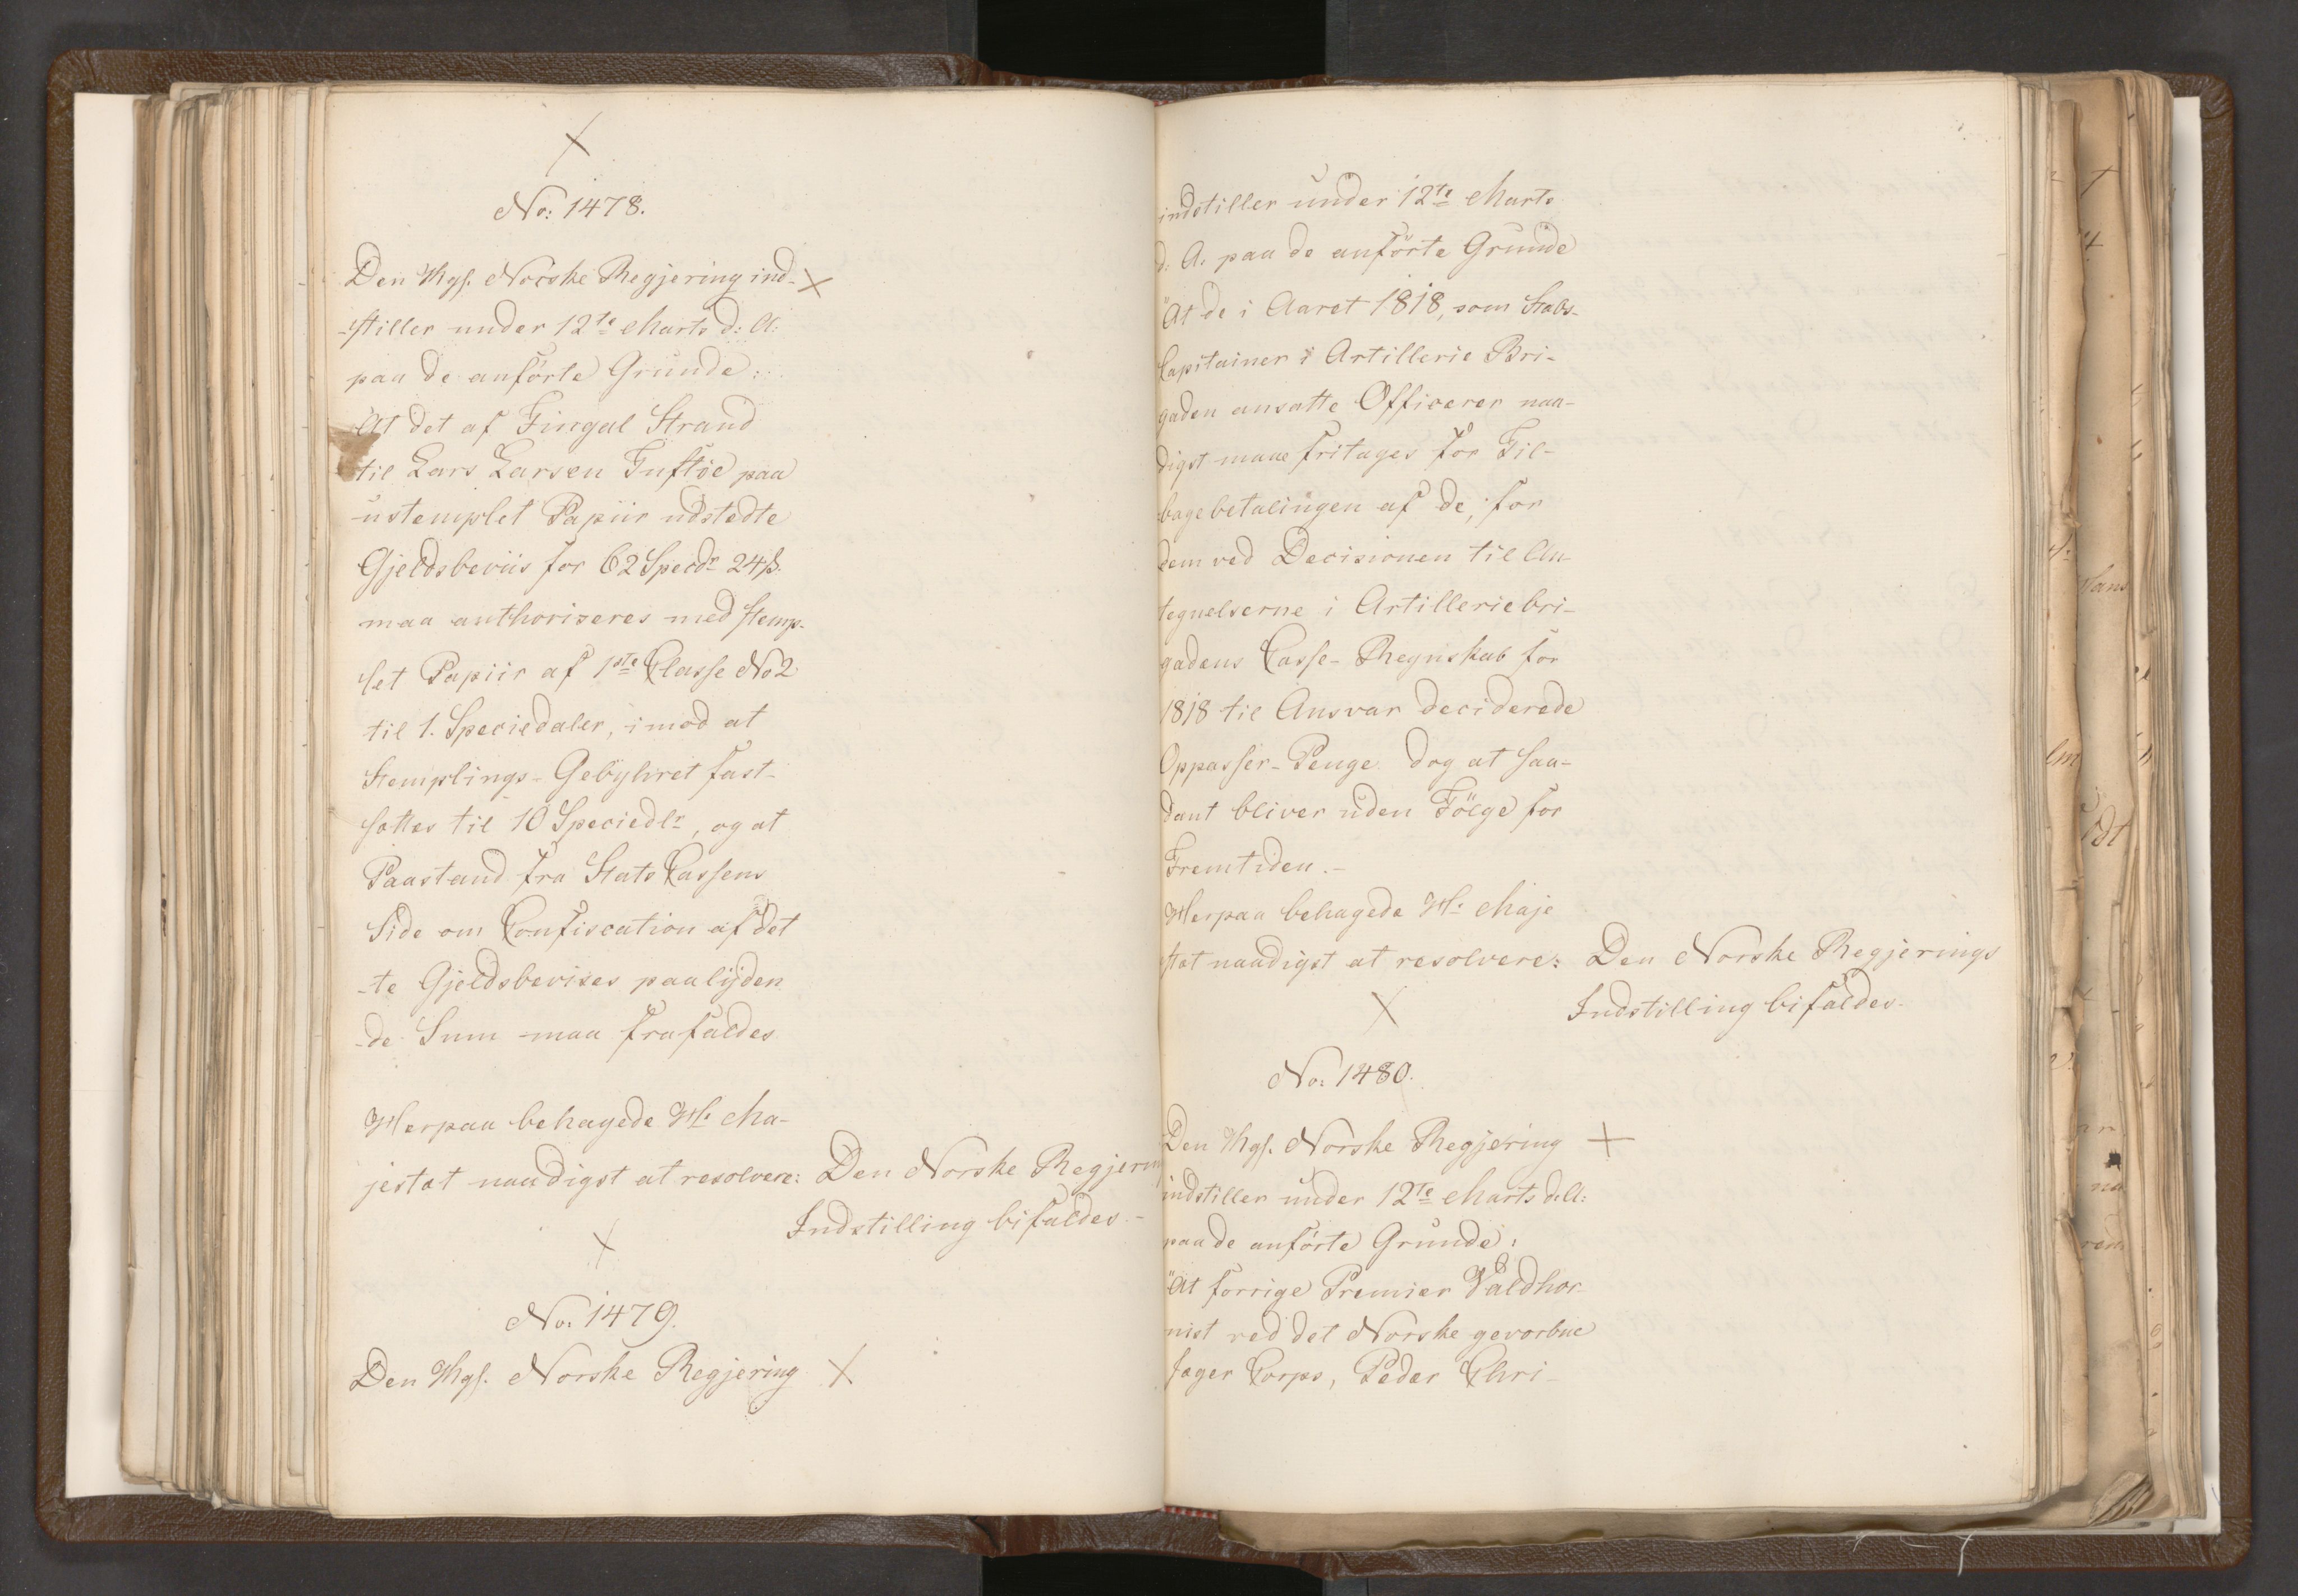 No: 1478.
Den Kgs. Norske Regjering ind-
-stiller under 12te Marts d: A:
paa de anförte Grunde:
At det af Fingal Strand
til Lars Larsen Tuftöe paa
ustemplet Papiir udstedte
Gjeldsbeviis for 62 Specdr 24 ß.
maa authoriseres med stemp-
let Papiir af 1ste Classe No 2
til 1. Speciedaler, imod at
Stemplings-Gebyhret fast-
sættes til 10 Speciedlr, og at
Paastand fra Stats Cassens
Side om Confiscation af det
-te Gjeldsbevises paalyden
-de Sum maa frafaldes
Herpaa behagede Hs Ma-
jestæt naadigst at resolvere: Den Norske Regjering
Indstilling bifaldes.-
No. 1479.
Den Kgs. Norske Regjering
indstiller under 12te Marts
d: A: paa de anförte Grunde
"At de i Aaret 1818, som Stabs-
Capitainer i Artillerie Bri-
gaden ansatte Officerer naa-
digst maae fritages for Til-
bagebetalingen af de, for
dem ved Decisionen til An-
tegnelserne i Artilleriebri-
gadens Casse-Regnskab for
1818 til Ansvar deciderede
Oppasser-Penge dog at saa-
dant bliver uden Fölge for
Fremtiden.-
Herpaa behagede Hs Maje
stæt naadigst at resolvere: Den Norske Regjerings
Indstilling bifaldes.
No: 1480.
Den Kgs. Norske Regjering
indstiller under 12te Marts d.A:
paa de anförte Grunde:
"At forrige Premier Valdhor
nist ved det Norske gevorbne
Jæger Corps, Peder Chri-